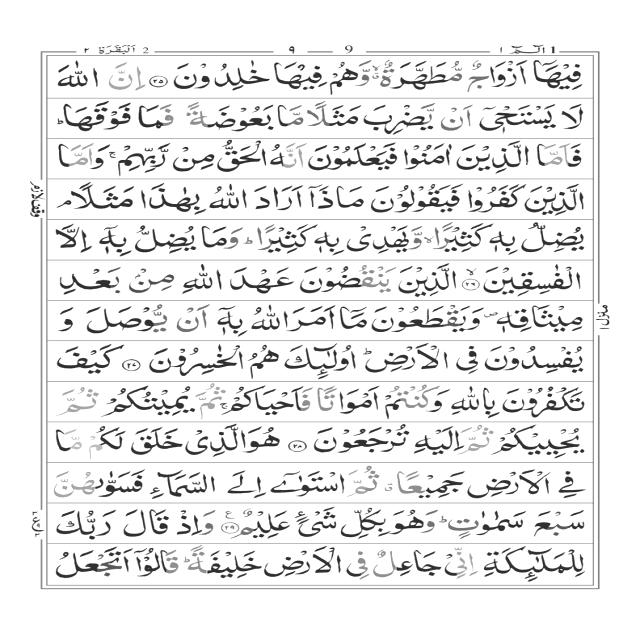 الٓمّٓ ١ 1 ٩ 9 البقرة ٢ 2
فِيْهَاۤ اَزْوَاجٌ مُّطَهَّرَةٌ ۙۗ وَّهُمْ فِيْهَا خٰلِدُوْنَ ﴿۲۵﴾ اِنَّ اللّٰهَ
لَا يَسْتَحْيٖۤ اَنْ يَّضْرِبَ مَثَلًا مَّا بَعُوْضَةً فَمَا فَوْقَهَا ؕ
فَاَمَّا الَّذِيْنَ اٰمَنُوْا فَيَعْلَمُوْنَ اَنَّهُ الْحَقُّ مِنْ رَّبِّهِمْ ۚ وَاَمَّا
الَّذِيْنَ كَفَرُوْا فَيَقُوْلُوْنَ مَاذَاۤ اَرَادَ اللّٰهُ بِهٰذَا مَثَلًا ۘ
يُضِلُّ بِهٖ كَثِيْرًا ۙ وَّيَهْدِىْ بِهٖ كَثِيْرًا ؕ وَمَا يُضِلُّ بِهٖۤ اِلَّا
الْفٰسِقِيْنَ ﴿۲۶﴾ الَّذِيْنَ يَنْقُضُوْنَ عَهْدَ اللّٰهِ مِنْۢ بَعْدِ
مِيْثَاقِهٖ ۪ وَيَقْطَعُوْنَ مَاۤ اَمَرَ اللّٰهُ بِهٖۤ اَنْ يُّوْصَلَ وَ
يُفْسِدُوْنَ فِى الْاَرْضِ ؕ اُولٰٓئِكَ هُمُ الْخٰسِرُوْنَ ﴿۲۷﴾ كَيْفَ
تَكْفُرُوْنَ بِاللّٰهِ وَكُنْتُمْ اَمْوَاتًا فَاَحْيَاكُمْ ۚ ثُمَّ يُمِيْتُكُمْ ثُمَّ
يُحْيِيْكُمْ ثُمَّ اِلَيْهِ تُرْجَعُوْنَ ﴿۲۸﴾ هُوَ الَّذِىْ خَلَقَ لَكُمْ مَّا
فِى الْاَرْضِ جَمِيْعًا ۗ ثُمَّ اسْتَوٰۤى اِلَى السَّمَآءِ فَسَوّٰىهُنَّ
سَبْعَ سَمٰوٰتٍ ؕ وَهُوَ بِكُلِّ شَىْءٍ عَلِيْمٌ ﴿۲۹﴾ وَاِذْ قَالَ رَبُّكَ
لِلْمَلٰٓئِكَةِ اِنِّىْ جَاعِلٌ فِى الْاَرْضِ خَلِيْفَةً ؕ قَالُوْۤا اَتَجْعَلُ
منزل ١